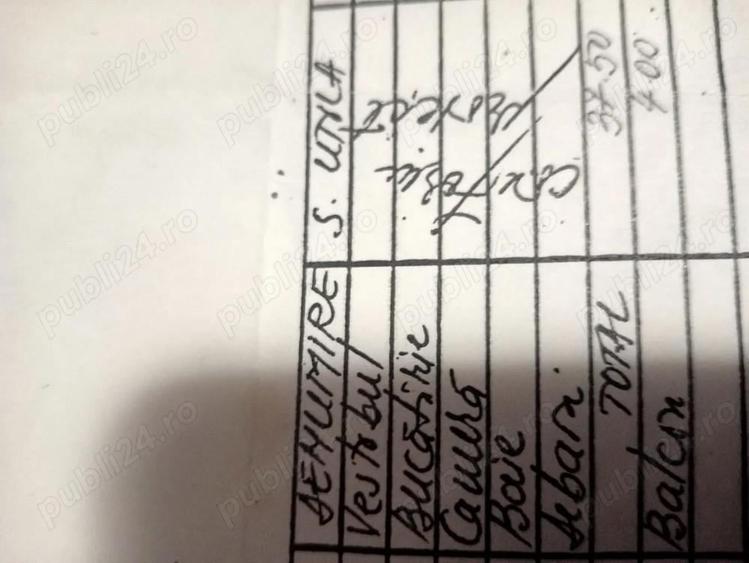 DENUMIRE S. UTILA
Vestibul
Bucătărie
Camera
Baie
Debara
TOTAL 37.50
Balcon 4.00
publi24.ro